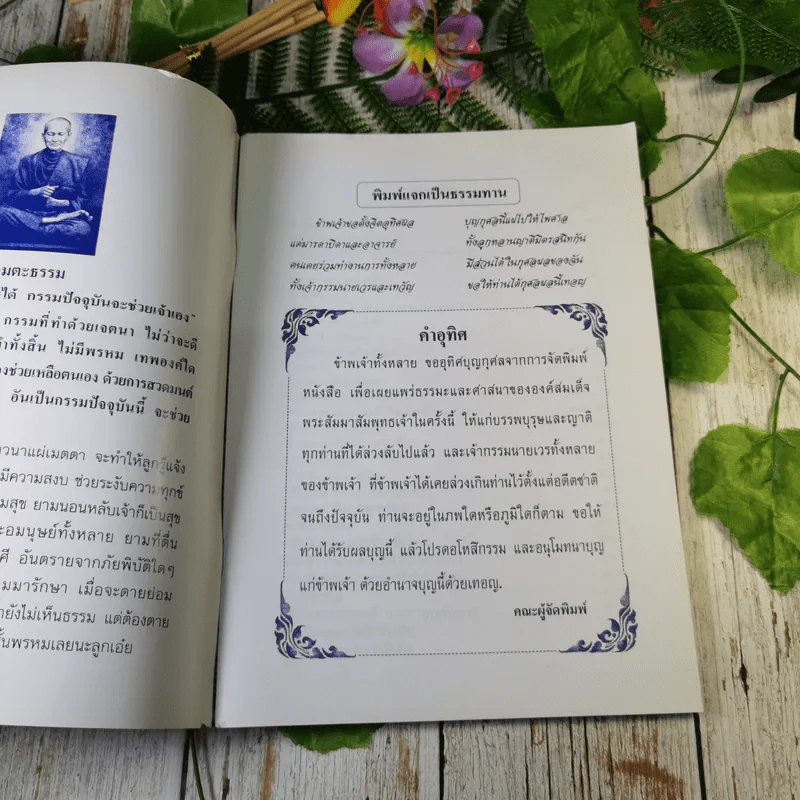 มตะธรรม
ได้ กรรมปัจจุบันจะช่วยเจ้าเอง"
กรรมที่ทำด้วยเจตนา ไม่ว่าจะดี
ทั้งสิ้น ไม่มีพรหม เทพองค์ใด
ช่วยเหลือตนเอง ด้วยการสวดมนต์
อันเป็นกรรมปัจจุบันนี้ จะช่วย
วนาแผ่เมตตา จะทำให้ลูกรู้แจ้ง
มีความสงบ ช่วยระงับความทุกข์
มสุข ยามนอนหลับเจ้าก็เป็นสุข
ะอมนุษย์ทั้งหลาย ยามที่ตื่น
ศี อันตรายจากภัยพิบัติใดๆ
มมารักษา เมื่อจะตายย่อม
ายังไม่เห็นธรรม แต่ต้องตาย
ั้นพรหมเลยนะลูกเอ๋ย
พิมพ์แจกเป็นธรรมทาน
ข้าพเจ้าขอตั้งจิตอุทิศผล บุญกุศลนี้แผ่ไปให้ไพศาล
แด่มารดาบิดาและอาจารย์ ทั้งลูกหลานญาติมิตรสนิทกัน
คนเคยร่วมทำงานการทั้งหลาย มีส่วนได้ในกุศลผลของฉัน
ทั้งเจ้ากรรมนายเวรและเทวัญ ขอให้ท่านได้กุศลผลนี้เทอญ
คำอุทิศ
ข้าพเจ้าทั้งหลาย ขออุทิศบุญกุศลจากการจัดพิมพ์
หนังสือ เพื่อเผยแพร่ธรรมะและศาสนาขององค์สมเด็จ
พระสัมมาสัมพุทธเจ้าในครั้งนี้ ให้แก่บรรพบุรุษและญาติ
ทุกท่านที่ได้ล่วงลับไปแล้ว และเจ้ากรรมนายเวรทั้งหลาย
ของข้าพเจ้า ที่ข้าพเจ้าได้เคยล่วงเกินท่านไว้ตั้งแต่อดีตชาติ
จนถึงปัจจุบัน ท่านจะอยู่ในภพใดหรือภูมิใดก็ตาม ขอให้
ท่านได้รับผลบุญนี้ แล้วโปรดอโหสิกรรม และอนุโมทนาบุญ
แก่ข้าพเจ้า ด้วยอำนาจบุญนี้ด้วยเทอญ.
คณะผู้จัดพิมพ์